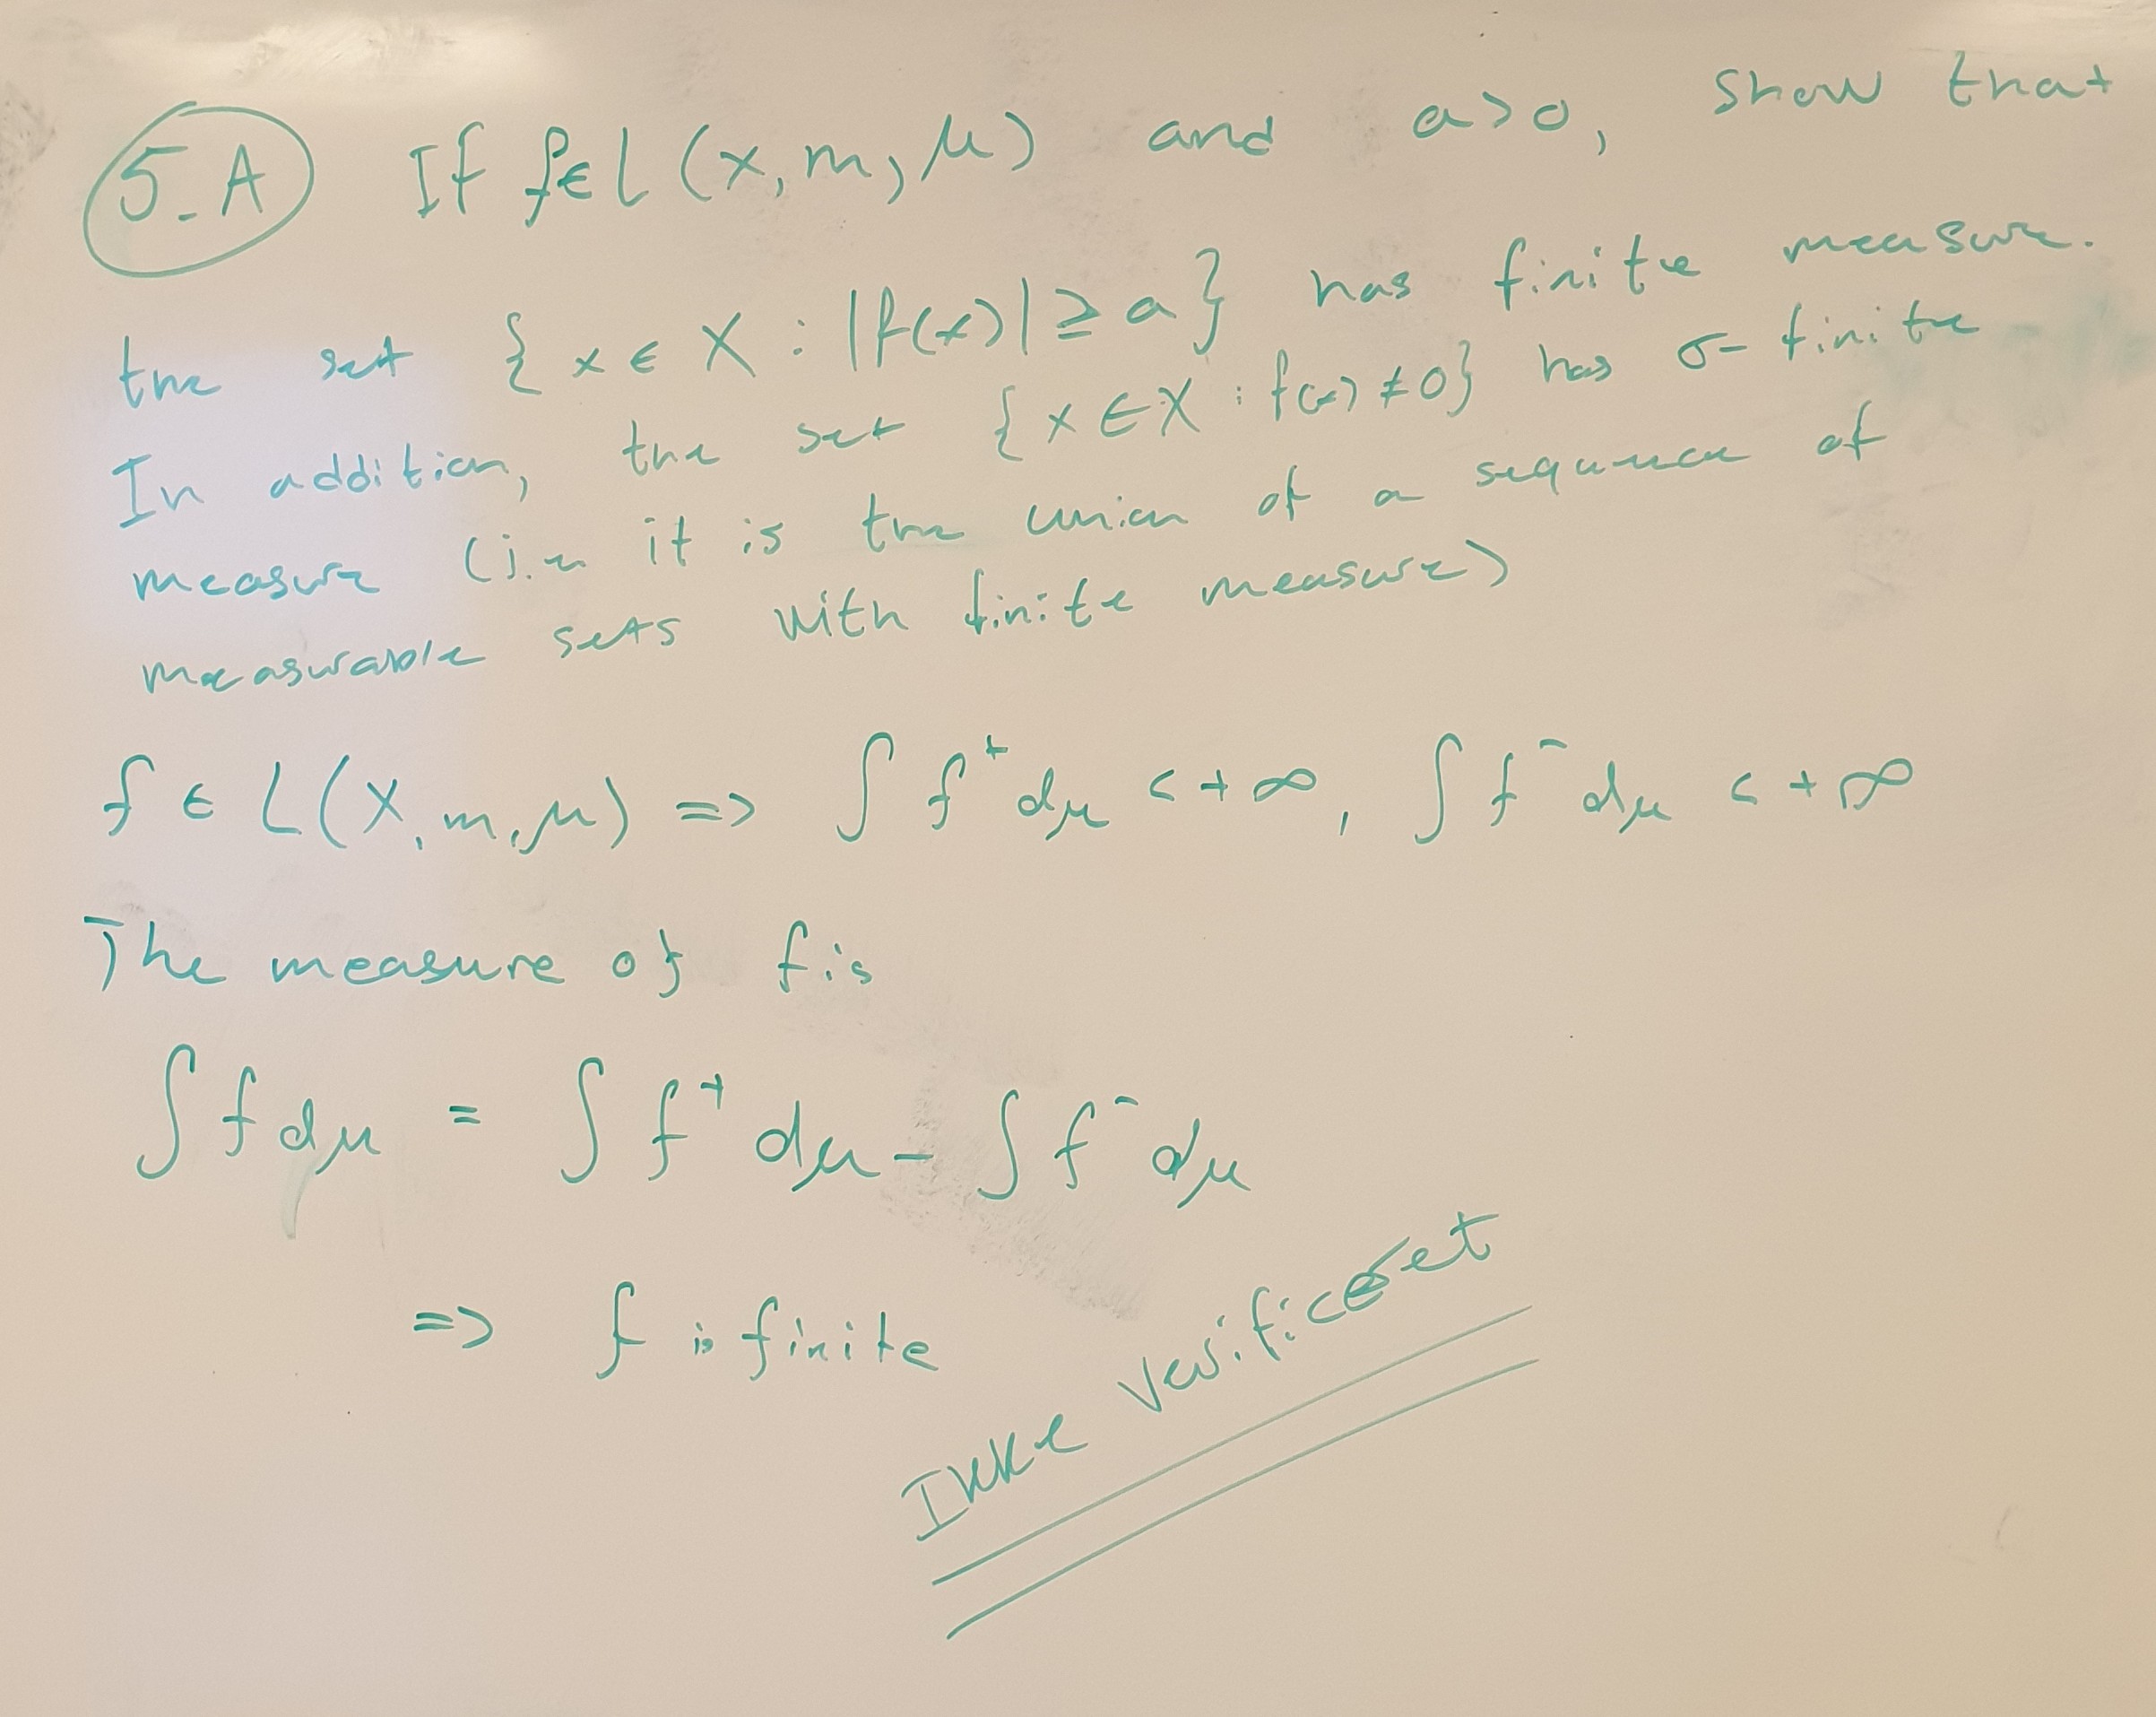 5.A If f∈L(x,m,μ) and a>0, show that
the set {x∈X : |f(x)|≥a} has finite measure.
In addition, the set {x∈X : f(x)≠0} has σ-finite
measure (i.e it is the union of a sequence of
measurable sets with finite measure)
f∈L(X,m,μ) => ∫f⁺dμ < +∞, ∫f⁻dμ < +∞
The measure of f is
∫f dμ = ∫f⁺dμ - ∫f⁻dμ
=> f is finite
Ikke verificeret